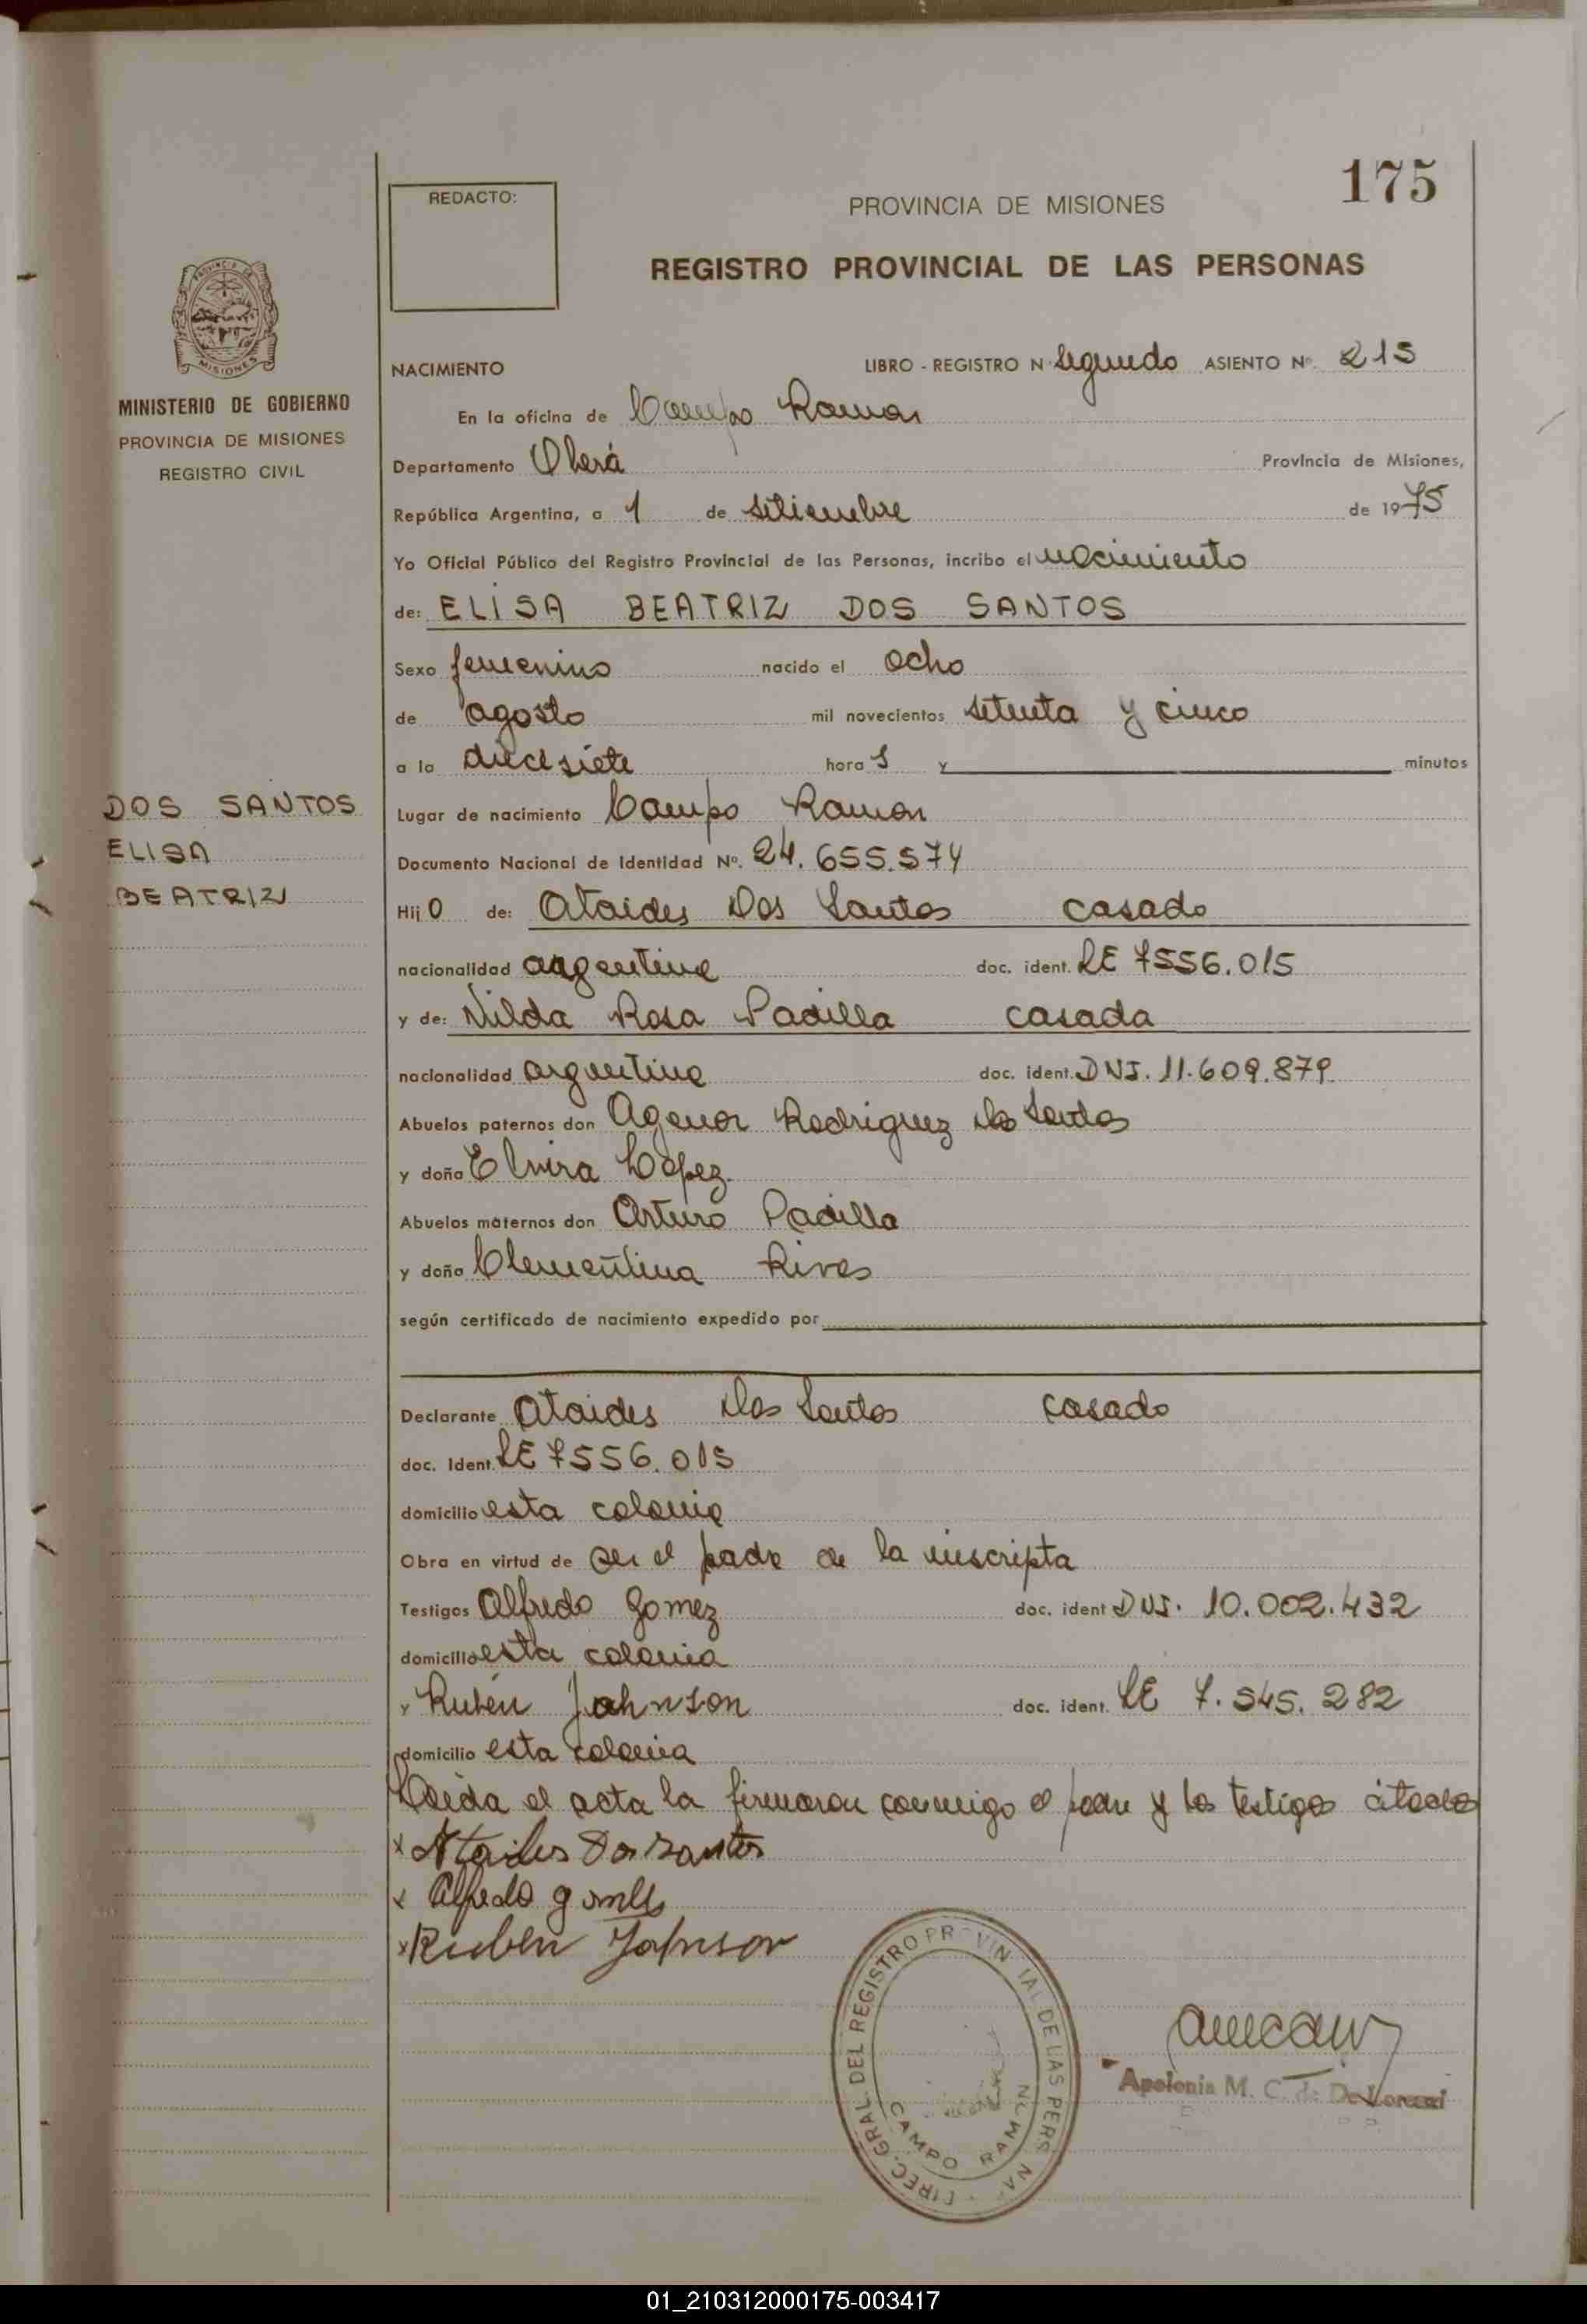 175
REDACTO:
PROVINCIA DE MISIONES
REGISTRO PROVINCIAL DE LAS PERSONAS
PROVINCIA DE
MISIONES
MINISTERIO DE GOBIERNO
PROVINCIA DE MISIONES
REGISTRO CIVIL
NACIMIENTO LIBRO - REGISTRO N segundo ASIENTO Nº. 215
En la oficina de Campo Ramon
Departamento Oberá Provincia de Misiones,
República Argentina, a 1 de setiembre de 1975
Yo Oficial Público del Registro Provincial de las Personas, incribo el nacimiento
de: ELISA BEATRIZ DOS SANTOS
Sexo femenino nacido el ocho
de agosto mil novecientos setenta y cinco
a la diecisiete hora s y minutos
DOS SANTOS
ELISA
BEATRIZ
Lugar de nacimiento Campo Ramon
Documento Nacional de Identidad Nº. 24.655.574
Hij o de: Ataides Dos Santos casado
nacionalidad argentina doc. ident. LE 7556.015
y de: Nilda Rosa Padilla casada
nacionalidad argentina doc. ident. DNI. 11.609.879
Abuelos paternos don Agenor Rodriguez Dos Santos
y doña Elvira Lopez.
Abuelos maternos don Arturo Padilla
y doña Clementina Rivas
según certificado de nacimiento expedido por
Declarante Ataides Dos Santos casado
doc. Ident. LE 7556.015
domicilio esta colonia
Obra en virtud de ser el padre de la inscripta
Testigos Alfredo Gomez doc. ident DNI. 10.002.432
domicilio esta colonia
y Rubén Johnson doc. ident. LE 7.545.282
domicilio esta colonia
Leída el acta la firmaron conmigo el padre y los testigos citados
x Ataides Dos Santos
x Alfredo gomes
x Ruben Johnson
DIREC. GRAL. DEL REGISTRO PR VIN IAL DE LAS PERS NA
CAMPO RAMON
Apolonia M. C. de De Lorenzi
01_210312000175-003417